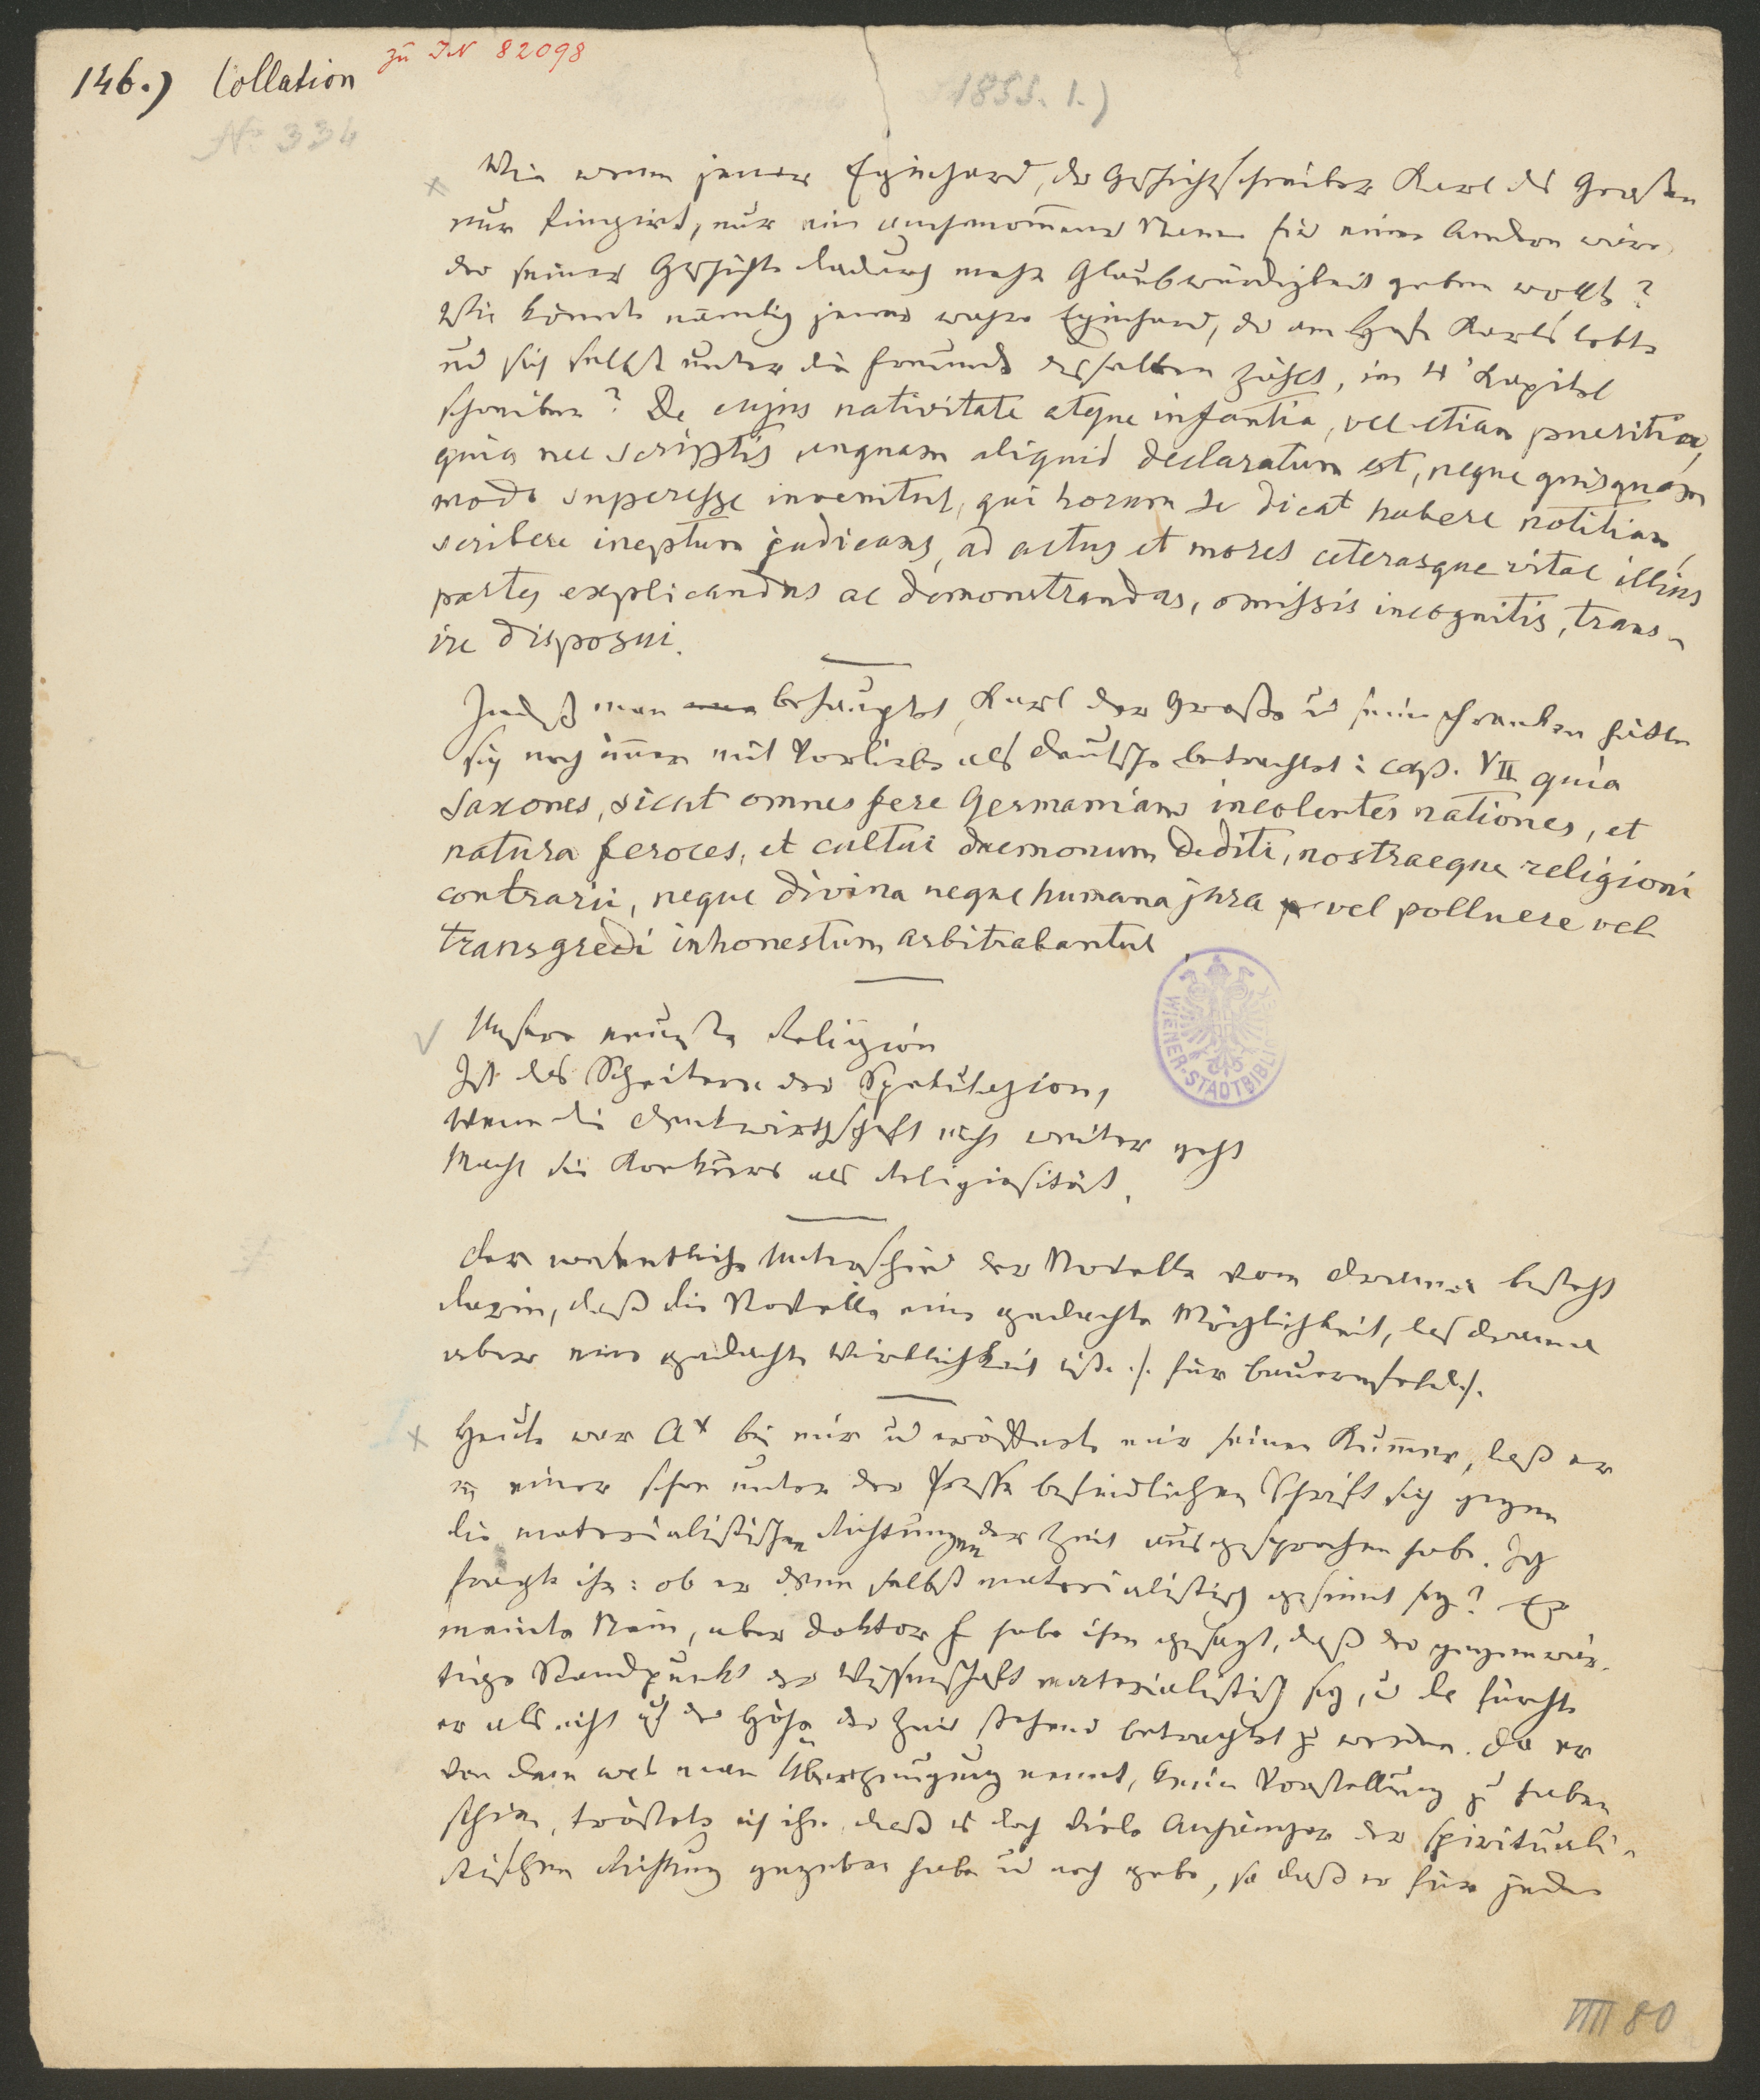 zu IN 82098
146.) Collation
1855. 1.)
No 334
Wie wenn jener Eginhard, der Geschichtschreiber Karl des Großen
nur fingirt, nur ein angenommener Name für einen Andern wäre,
der seiner Geschichte dadurch mehr Glaubwürdigkeit geben wollte?
Wie könnte nämlich jener wahre Eginhard, der am Hofe Karls lebte
und sich selbst unter die Freunde desselben zählt, im 4' Kapitel
schreiben? De cujus nativitate atque infantia, vel etiam pueritia,
quia nec scriptis unquam aliquid declaratum est, neque quisquam
modo superesse invenitur, qui horum se dicat habere notitiam,
scribere ineptum judicans, ad actus et mores ceterasque vitae illius
partes explicandas ac demonstrandas, omissis incognitis, trans-
ire disposui.
Indeß man behauptet, Karl der Große u seine Franken hätten
sich noch immer mit Vorliebe als Deutsche betrachtet: cap. VII quia
Saxones, sicut omnes fere Germaniam incolentes nationes, et
natura feroces, et cultui daemonum dediti, nostraeque religioni
contrarii, neque divina neque humana jura vel polluere vel
transgredi inhonestum arbitrabantur.
Unsere neueste Religion
Ist das Scheitern der Spekulazion,
Wenn die Denkwirthschaft nicht weiter geht
Macht sie Konkurs als Religiosität.
WIENER-STADTBIBL
Der wesentliche Unterschied der Novelle vom Drama besteht
darin, daß die Novelle eine gedachte Möglichkeit, das Drama
aber eine gedachte Wirklichkeit ist. /: für Bauernfeld :/.
Heute war A* bei mir u eröffnete mir seinen Kummer, daß er
in einer schon unter der Presse befindlichen Schrift sich gegen
die materialistischen Richtungen der Zeit ausgesprochen habe. Ich
fragte ihn: ob er denn selbst materialistisch gesinnt sey? Er
meinte Nein, aber Doktor F habe ihm gesagt, daß der gegenwär-
tige Standpunkt der Wissenschaft materialistisch sey, u da fürchte
er als nicht auf der Höhe der Zeit stehend betrachtet zu werden. Da er
von dem was man Überzeugung nennt, keine Vorstellung zu haben
schien, tröstete ich ihn, daß es doch viele Anhänger der spirituali-
stischen Richtung gegeben habe u noch gebe, so daß er für jeden
VIII 80